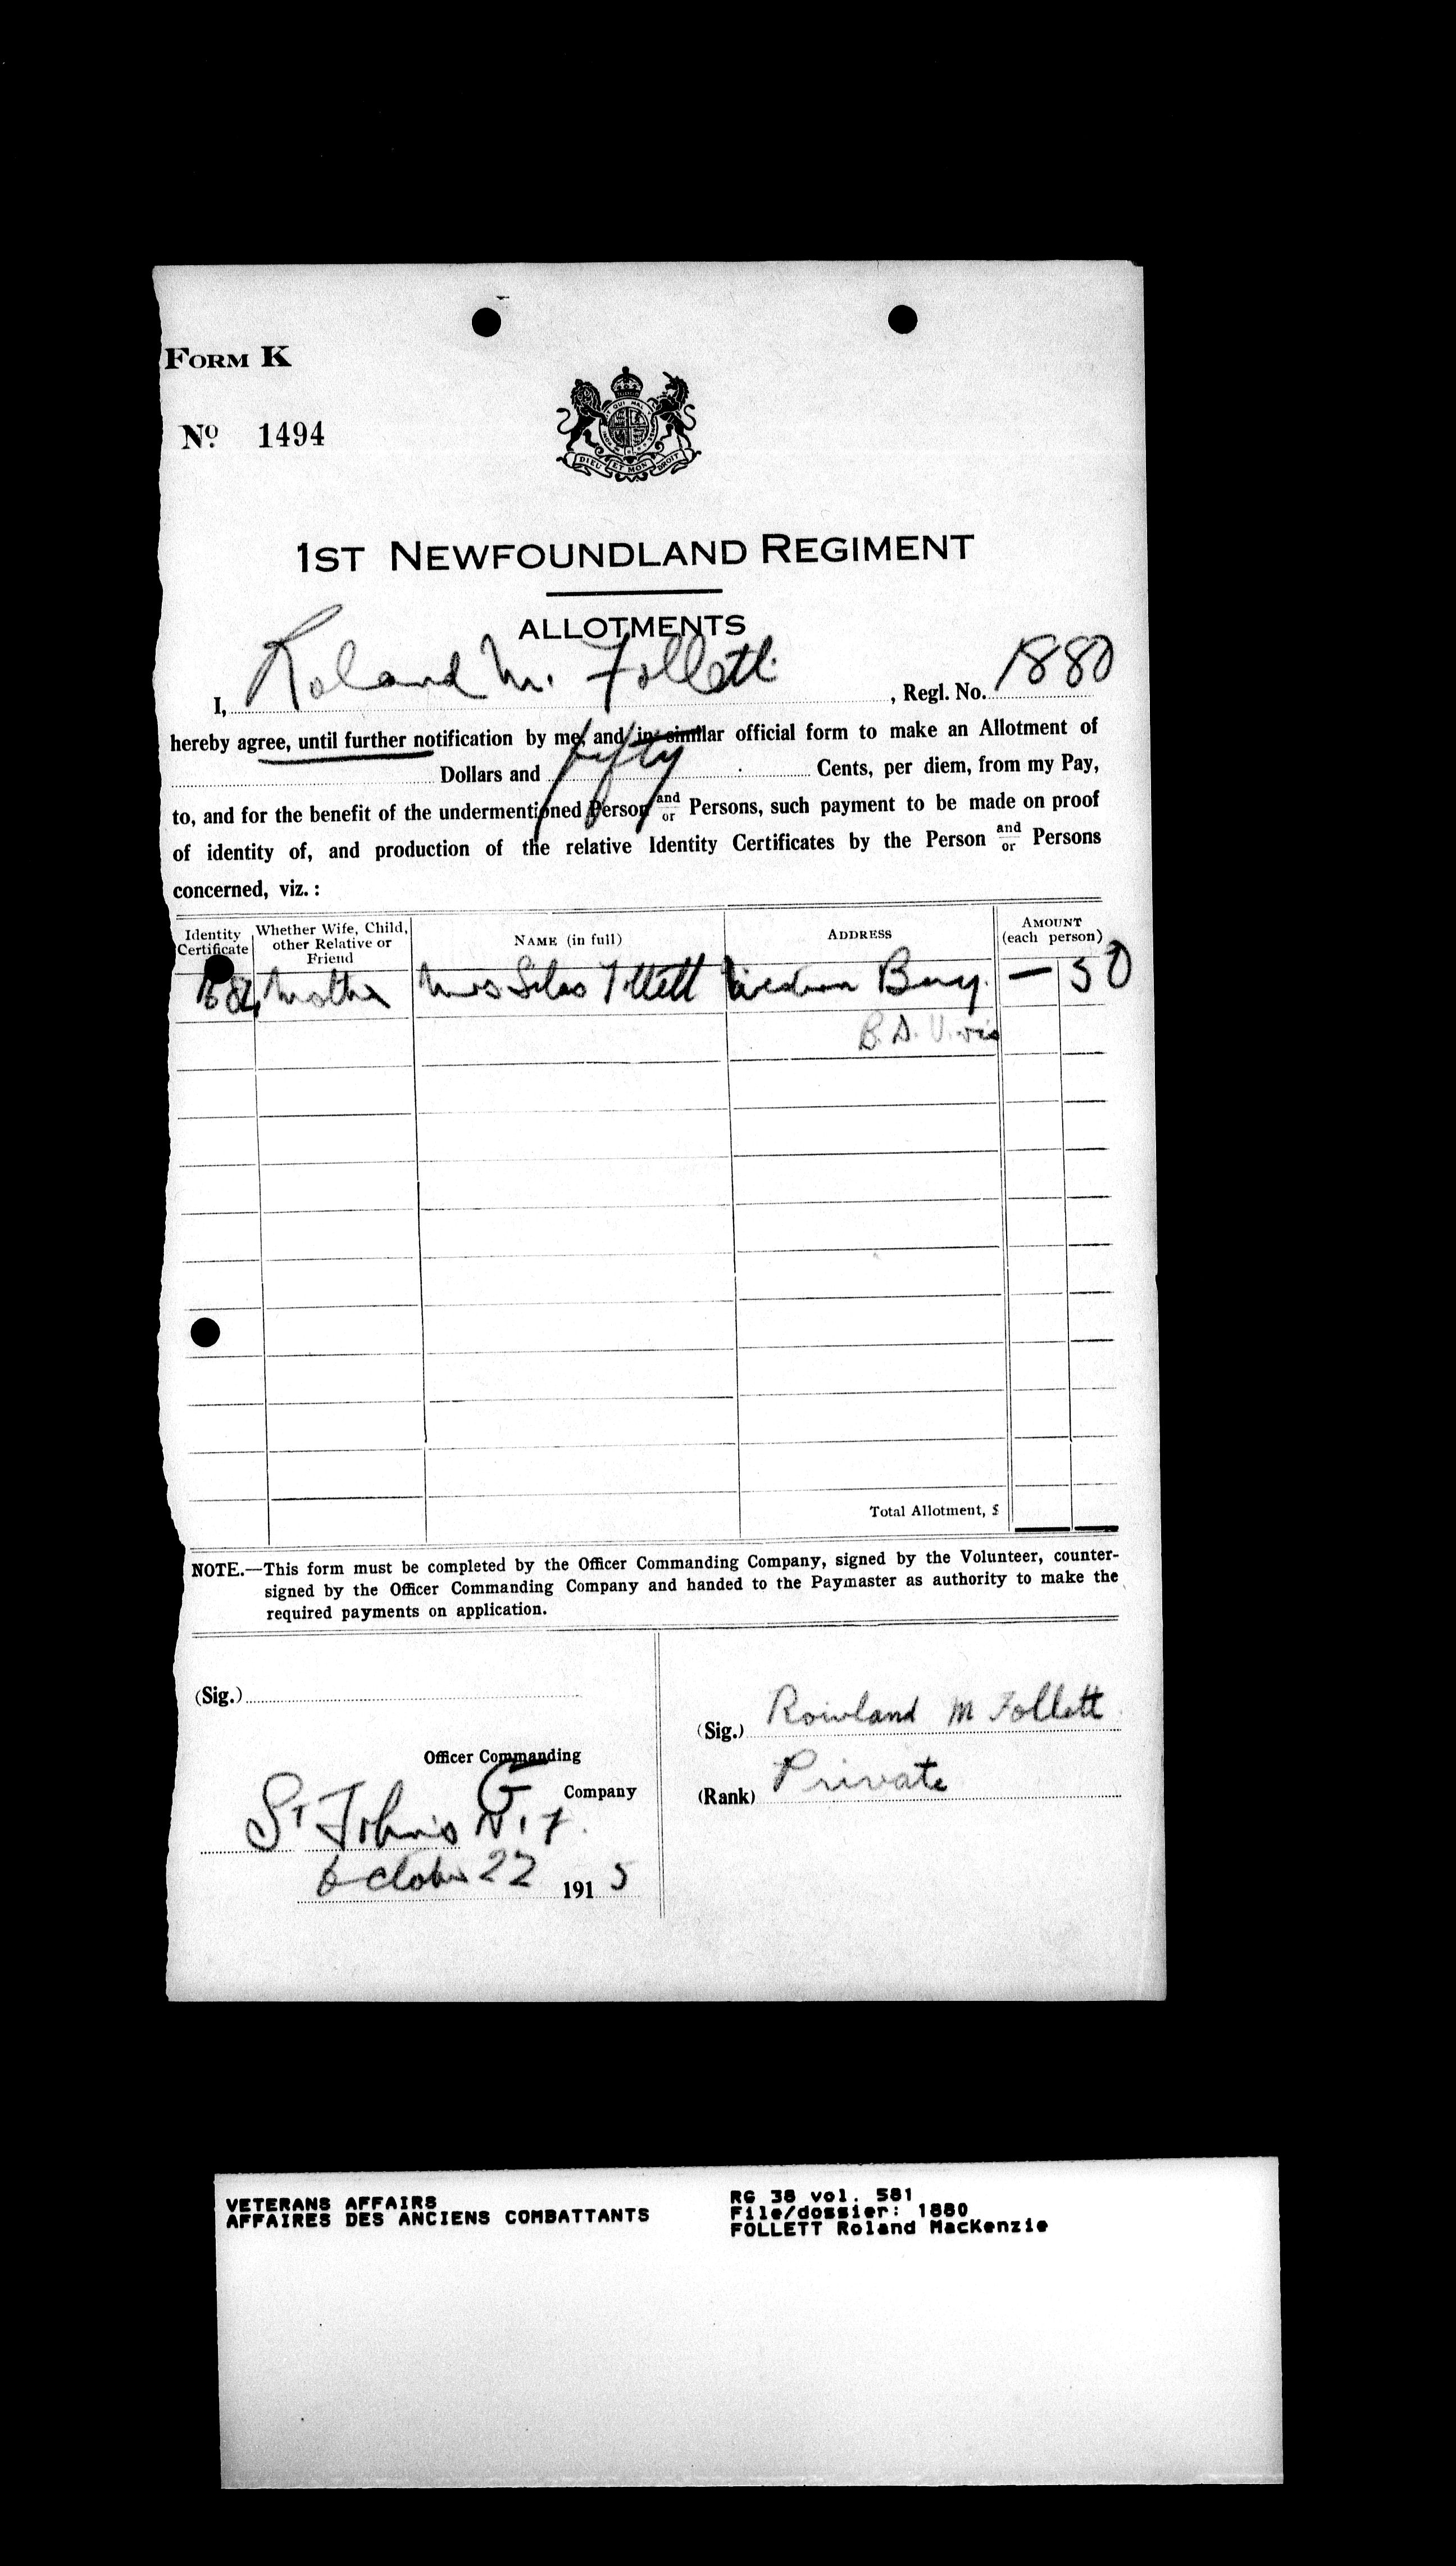 FORM K
No. 1494
DIEU ET MON DROIT
1ST NEWFOUNDLAND REGIMENT
ALLOTMENTS
I, Roland M. Follett, Regl. No. 1880
hereby agree, until further notification by me, and in similar official form to make an Allotment of
Dollars and fifty Cents, per diem, from my Pay,
to, and for the benefit of the undermentioned Person and/or Persons, such payment to be made on proof
of identity of, and production of the relative Identity Certificates by the Person and/or Persons
concerned, viz.:
Identity Certificate Whether Wife, Child, other Relative or Friend NAME (in full) ADDRESS AMOUNT (each person)
Mother Mrs Silas Follett Western Bay. — 50
B. D. V.
Total Allotment, $
NOTE.—This form must be completed by the Officer Commanding Company, signed by the Volunteer, counter-
signed by the Officer Commanding Company and handed to the Paymaster as authority to make the
required payments on application.
(Sig.)
(Sig.) Rowland M Follett
Officer Commanding
G Company
(Rank) Private
St John's N.F.
October 22 1915
VETERANS AFFAIRS
AFFAIRES DES ANCIENS COMBATTANTS
RG 38 vol. 581
File/dossier: 1880
FOLLETT Roland MacKenzie